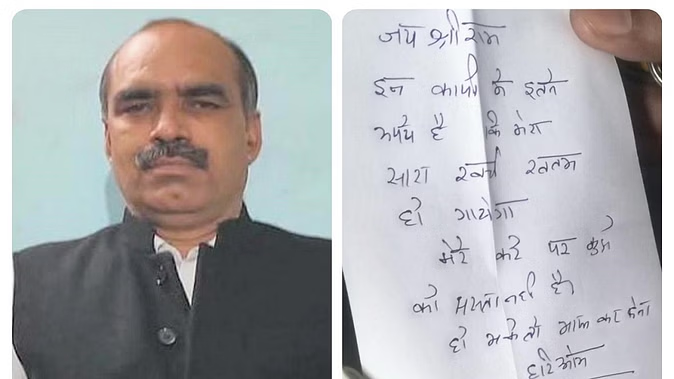 जय श्री राम
इन कापी मे इतने
रूपये है कि मेरा
सारा खर्चा खतम
हो जायेगा
मेरे करे पर
को ममता नही है।
हो सके तो माफ कर देना
हरिओम